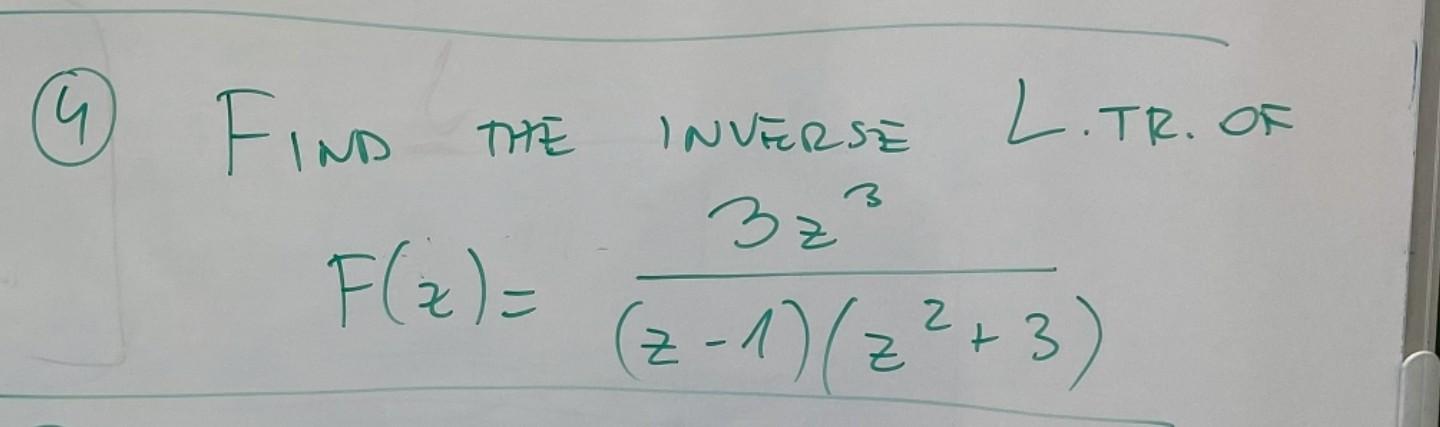 ④ FIND THE INVERSE L.TR. OF
F(z)= 3z³ / (z-1)(z²+3)